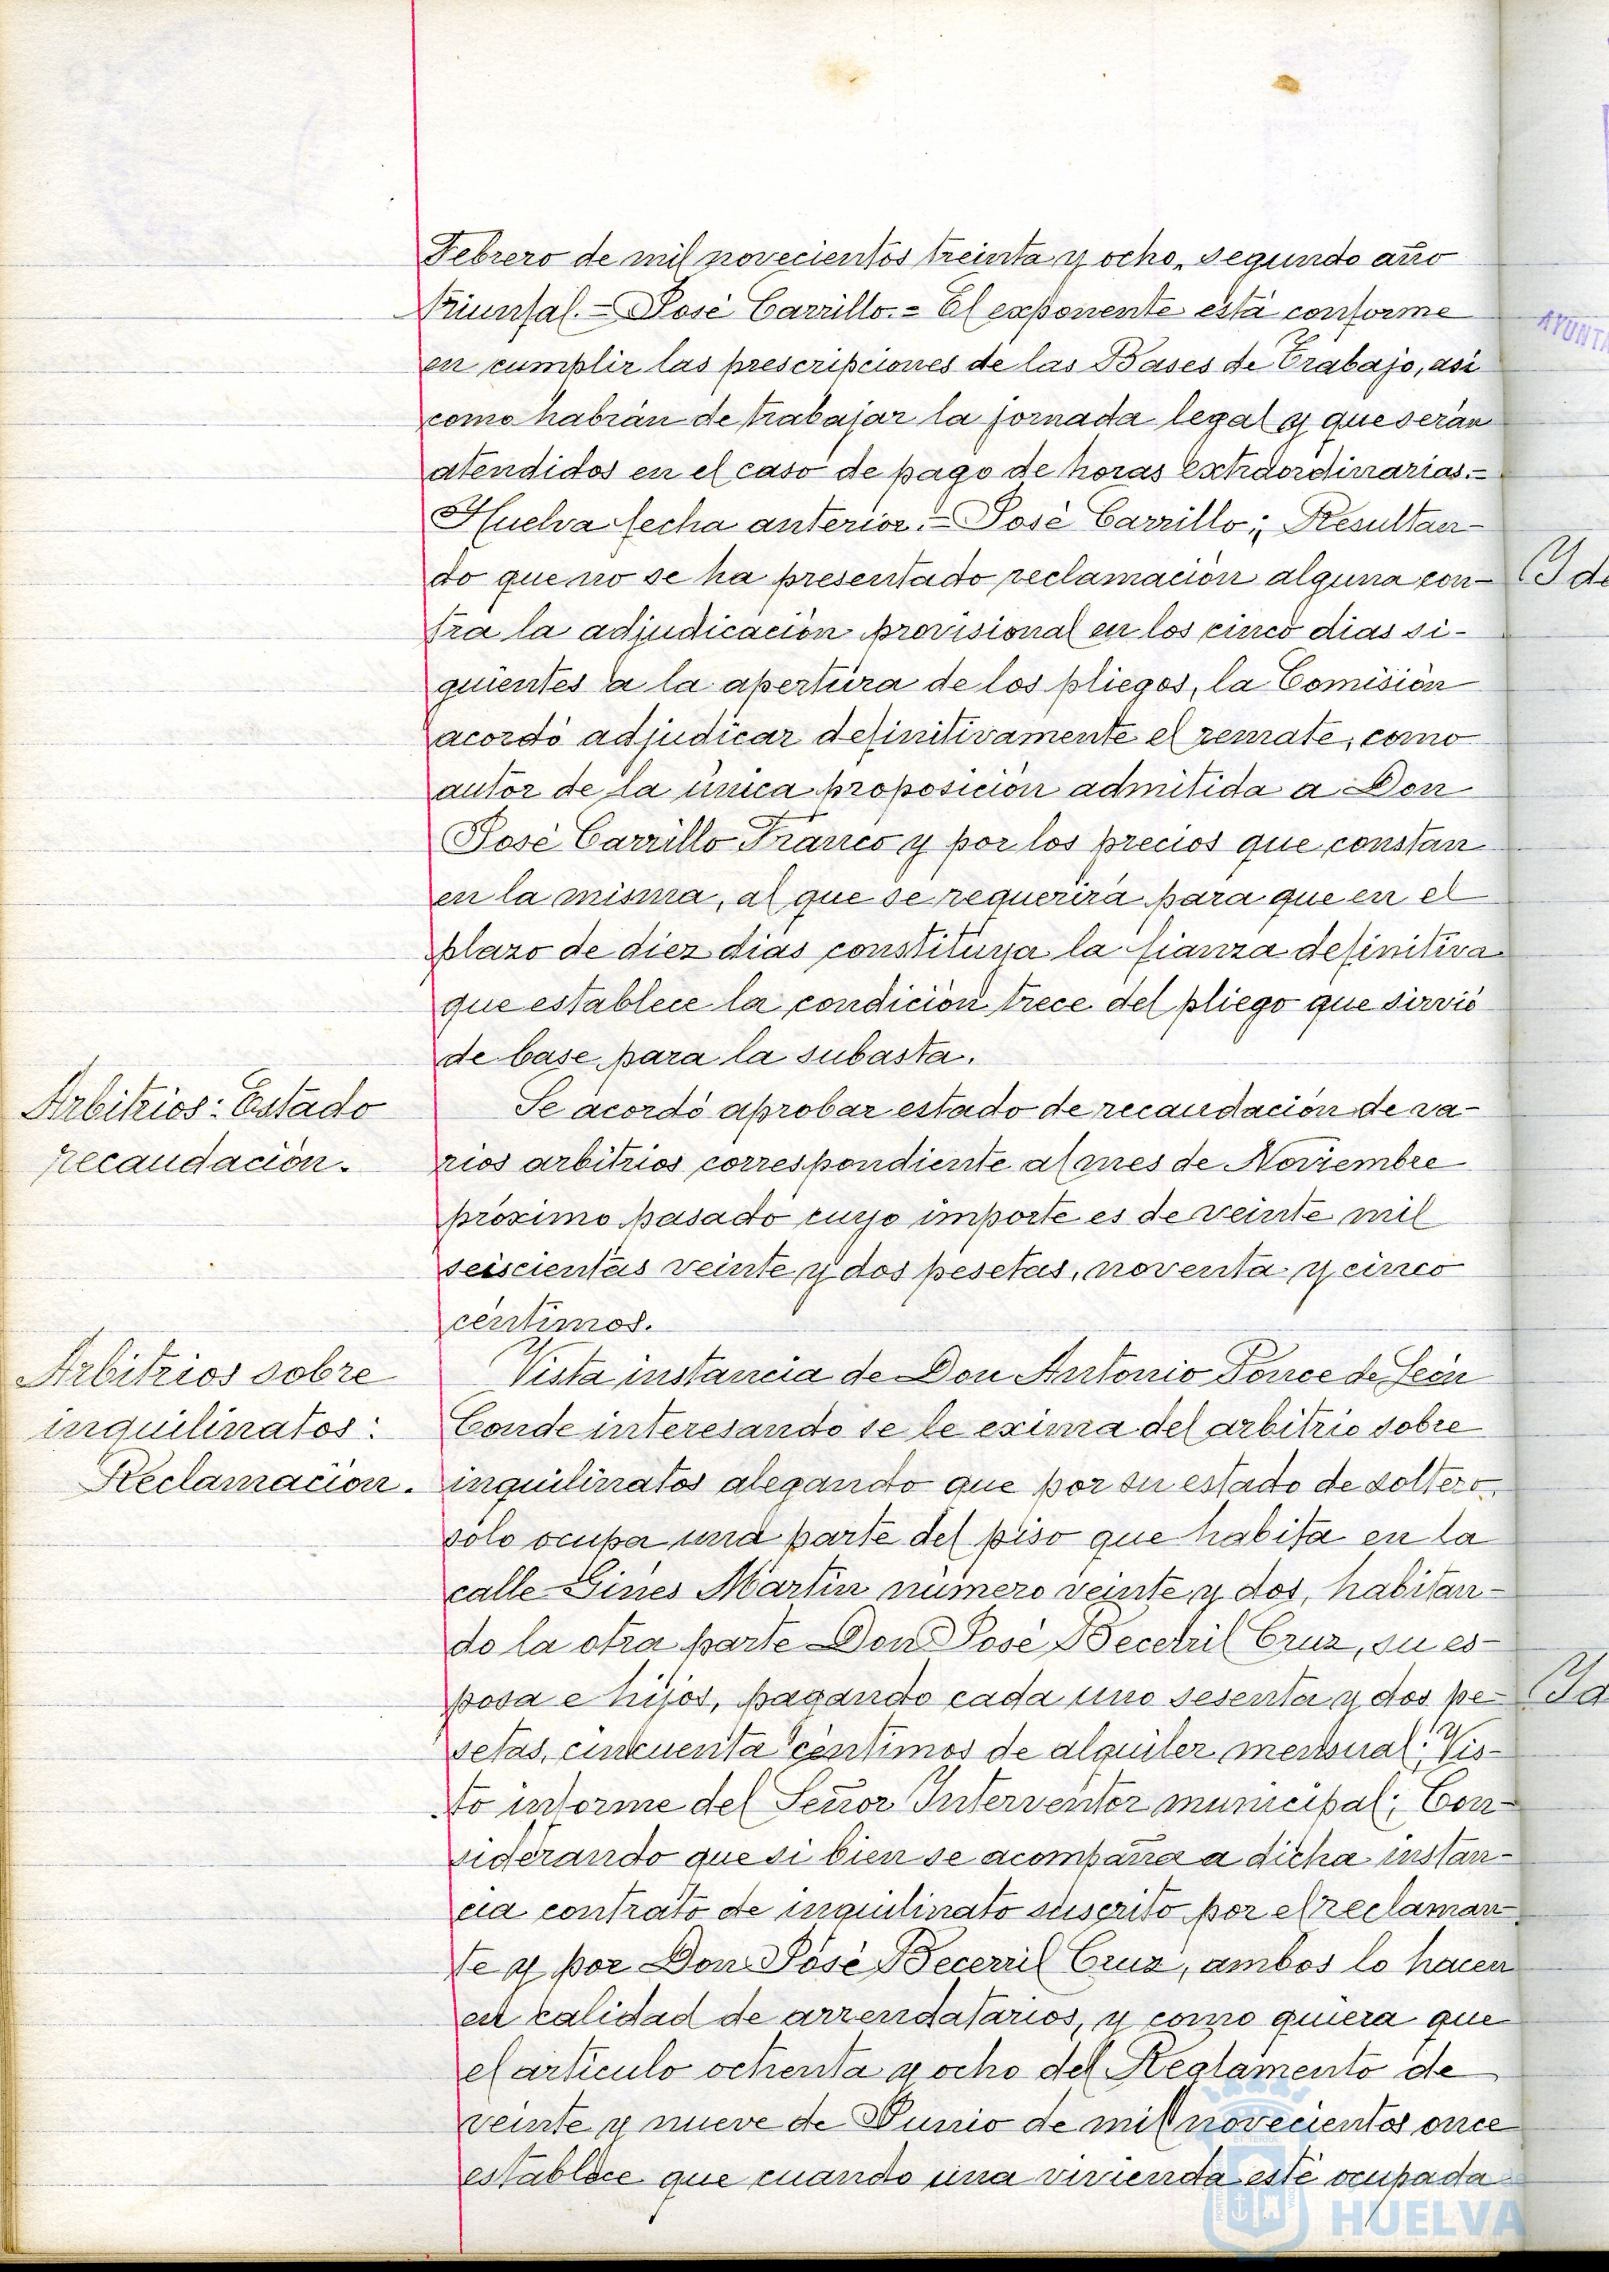 Febrero de mil novecientos treinta y ocho, segundo año
triunfal.= José Carrillo.= El exponente está conforme
en cumplir las prescripciones de las Bases de Trabajo, así
como habrán de trabajar la jornada legal y que serán
atendidos en el caso de pago de horas extraordinarias.=
Huelva fecha anterior.= José Carrillo; Resultan-
do que no se ha presentado reclamación alguna con-
tra la adjudicación provisional en los cinco dias si-
guientes a la apertura de los pliegos, la Comisión
acordó adjudicar definitivamente el remate, como
autor de la única proposición admitida a Don
José Carrillo Franco y por los precios que constan
en la misma, al que se requerirá para que en el
plazo de diez dias constituya la fianza definitiva
que establece la condición trece del pliego que sirvió
de base para la subasta.
Arbitrios: Estado
recaudación.
Se acordó aprobar estado de recaudación de va-
rios arbitrios correspondiente al mes de Noviembre
próximo pasado cuyo importe es de veinte mil
seiscientas veinte y dos pesetas, noventa y cinco
céntimos.
Arbitrios sobre
inquilinatos:
Reclamación.
Vista instancia de Don Antonio Ponce de León
Conde interesando se le exima del arbitrio sobre
inquilinatos alegando que por su estado de soltero,
sólo ocupa una parte del piso que habita en la
calle Ginés Martín número veinte y dos, habitan-
do la otra parte Don José Becerril Cruz, su es-
posa e hijos, pagando cada uno sesenta y dos pe-
setas, cincuenta céntimos de alquiler mensual: Vis-
to informe del Señor Interventor municipal; Con-
siderando que si bien se acompaña a dicha instan-
cia contrato de inquilinato suscrito por el reclaman-
te y por Don José Becerril Cruz, ambos lo hacen
en calidad de arrendatarios, y como quiera que
el artículo ochenta y ocho del Reglamento de
veinte y nueve de Junio de mil novecientos once
establece que cuando una vivienda esté ocupada
HUELVA